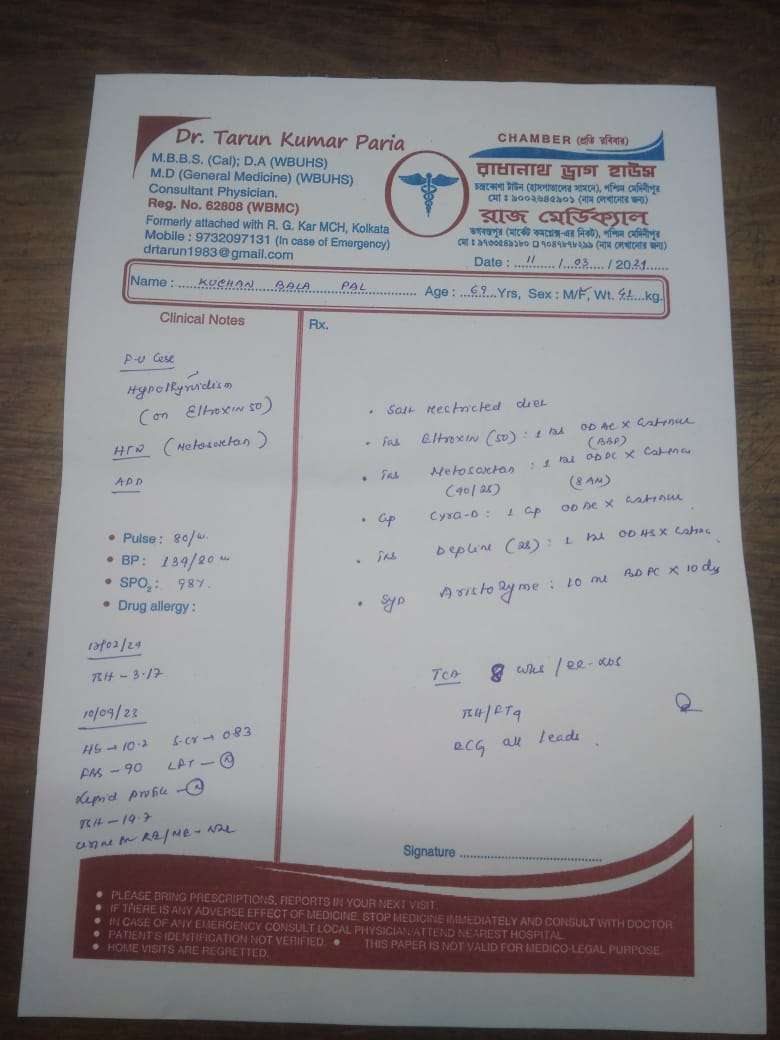 Dr. Tarun Kumar Paria
M.B.B.S. (Cal); D.A (WBUHS)
M.D (General Medicine) (WBUHS)
Consultant Physician.
Reg. No. 62808 (WBMC)
Formerly attached with R. G. Kar MCH, Kolkata
Mobile : 9732097131 (In case of Emergency)
drtarun1983@gmail.com
CHAMBER (প্রতি রবিবার)
রাধানাথ ড্রাগ হাউস
চন্দ্রকোণা টাউন (হাসপাতালের সামনে), পশ্চিম মেদিনীপুর
মো : ৯০০২৬৪৫৯০১ (নাম লেখানোর জন্য)
রাজ মেডিক্যাল
ভগবন্তপুর (মার্কেট কমপ্লেক্স-এর নিকট), পশ্চিম মেদিনীপুর
(নাম লেখানোর জন্য)
Date : 11 / 03 / 2024
Name : KUCHAN BALA PAL Age : 69 Yrs, Sex : M/F, Wt. 41 kg.
Clinical Notes
F-U Case
Hypothyroidism
(on Eltroxin 50)
HTN (Metosartan)
ADD
Pulse : 80/m.
BP : 134/80
SPO2 : 98%.
Drug allergy :
TSH - 3.17
10/09/23
Hb → 10.2 S.Cr → 0.83
FBS - 90 LFT - N
Lipid profile - N
TSH - 14.7
Urine for RE/ME - NAD
Rx.
Salt restricted diet
Tab Eltroxin (50) : 1 tab OD AC X Continue
(BBF)
Tab Metosartan : 1 tab OD PC X Continue
(8 AM)
Cap Cyra-D : 1 Cap OD AC X Continue
Tab Depline (25) : 1 tab OD HS X Continue
Syp Aristozyme : 10 ml BD PC X 10 dys
TCA 8 wks /
TSH/FT4
ECG all leads.
Signature
PLEASE BRING PRESCRIPTIONS, REPORTS IN YOUR NEXT VISIT.
IF THERE IS ANY ADVERSE EFFECT OF MEDICINE, STOP MEDICINE IMMEDIATELY AND CONSULT WITH DOCTOR
IN CASE OF ANY EMERGENCY CONSULT LOCAL PHYSICIAN/ATTEND NEAREST HOSPITAL.
PATIENT'S IDENTIFICATION NOT VERIFIED. THIS PAPER IS NOT VALID FOR MEDICO-LEGAL PURPOSE.
HOME VISITS ARE REGRETTED.